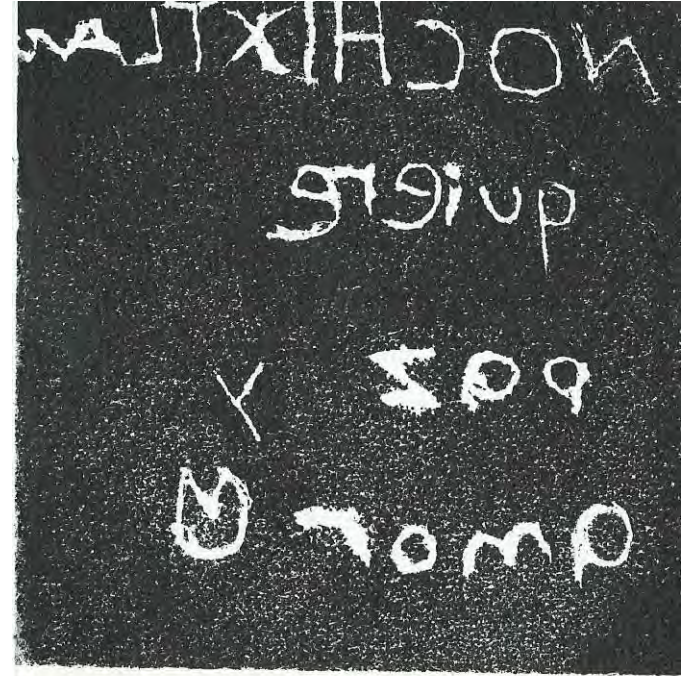 NOCHIXTLAN
quiere
paz Y
amor